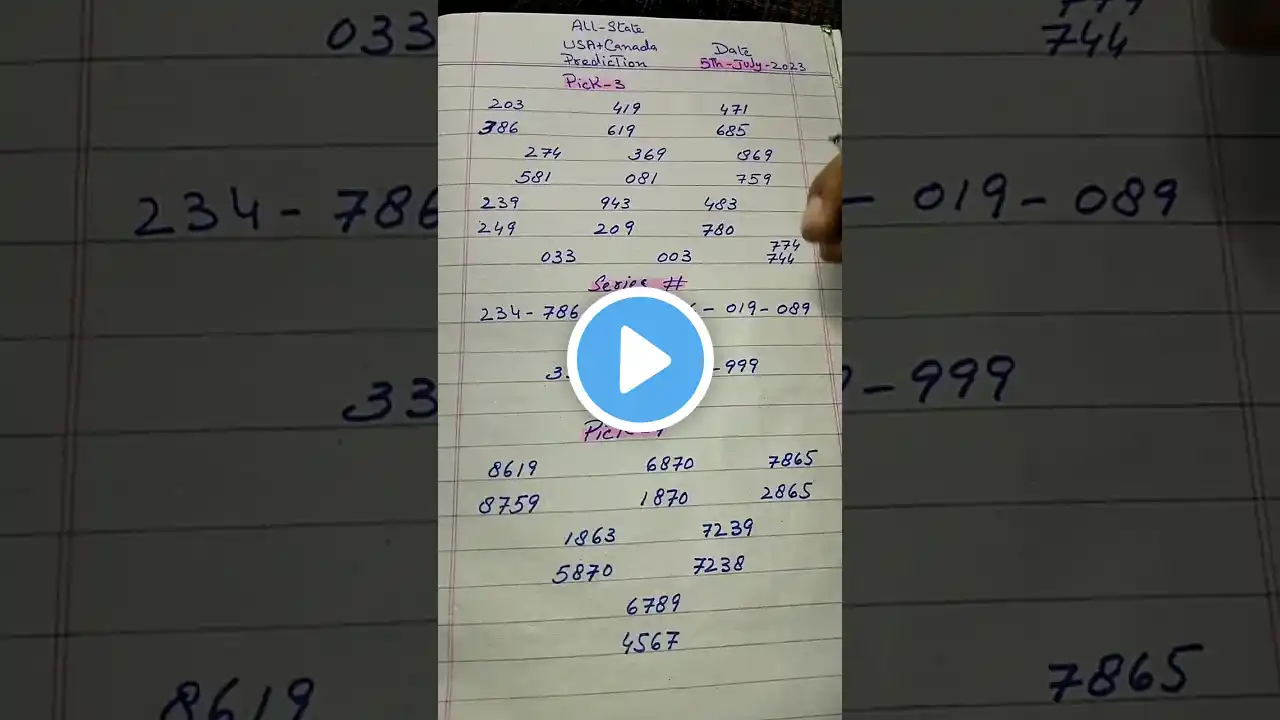 All-State
USA+Canada
Prediction
Date
5th-July-2023
Pick-3
203 419 471
386 619 685
274 369 869
581 081 759
239 943 483
249 209 780
033 003 774
744
Series #
234-786 - 019-089
-999
Pick-
8619 6870 7865
8759 1870 2865
1863 7239
5870 7238
6789
4567
033
744
234-786
- 019-089
33
-999
8619
7865